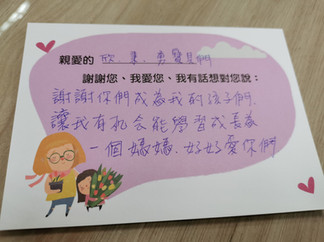 親愛的 欣、秉、勇寶貝們
謝謝您、我愛您、我有話想對您說：
謝謝你們成為我的孩子們，
讓我有机会能學習成長為
一個媽媽，好好愛你們